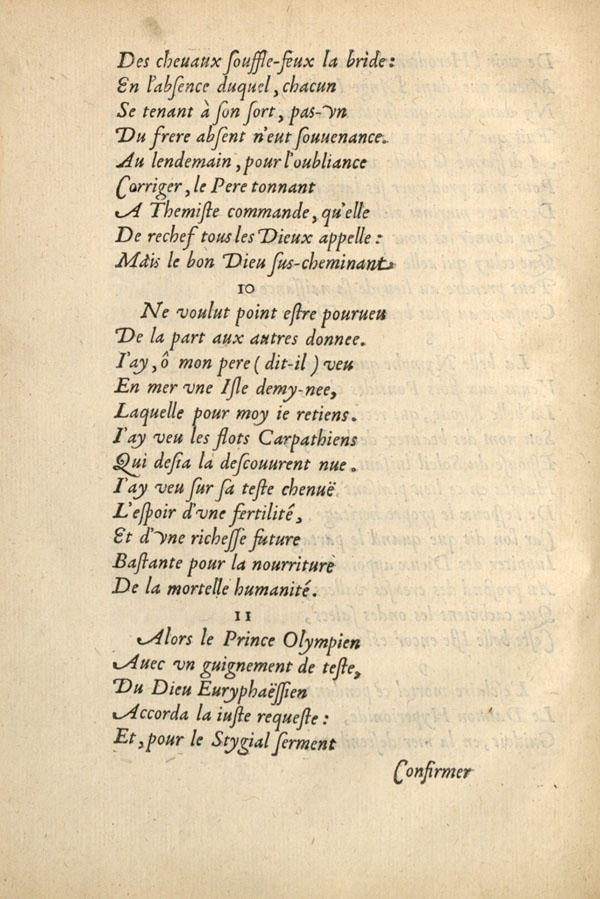 Des cheuaux ſouffle-feux la bride:
En l'abſence duquel, chacun
Se tenant à ſon ſort, pas-vn
Du frere abſent n'eut ſouuenance.
Au lendemain, pour l'oubliance
Corriger, le Pere tonnant
A Themiſte commande, qu'elle
De rechef tous les Dieux appelle:
Mais le bon Dieu ſus-cheminant
10
Ne voulut point eſtre pourueu
De la part aux autres donnee.
I'ay, ô mon pere (dit-il) veu
En mer vne Iſle demy-nee,
Laquelle pour moy ie retiens.
I'ay veu les flots Carpathiens
Qui deſia la deſcouurent nue.
I'ay veu ſur ſa teſte chenuë
L'eſpoir d'vne fertilité,
Et d'vne richeſſe future
Baſtante pour la nourriture
De la mortelle humanité.
11
Alors le Prince Olympien
Auec vn guignement de teſte,
Du Dieu Euryphaëſſien
Accorda la iuſte requeſte:
Et, pour le Stygial ſerment
Confirmer